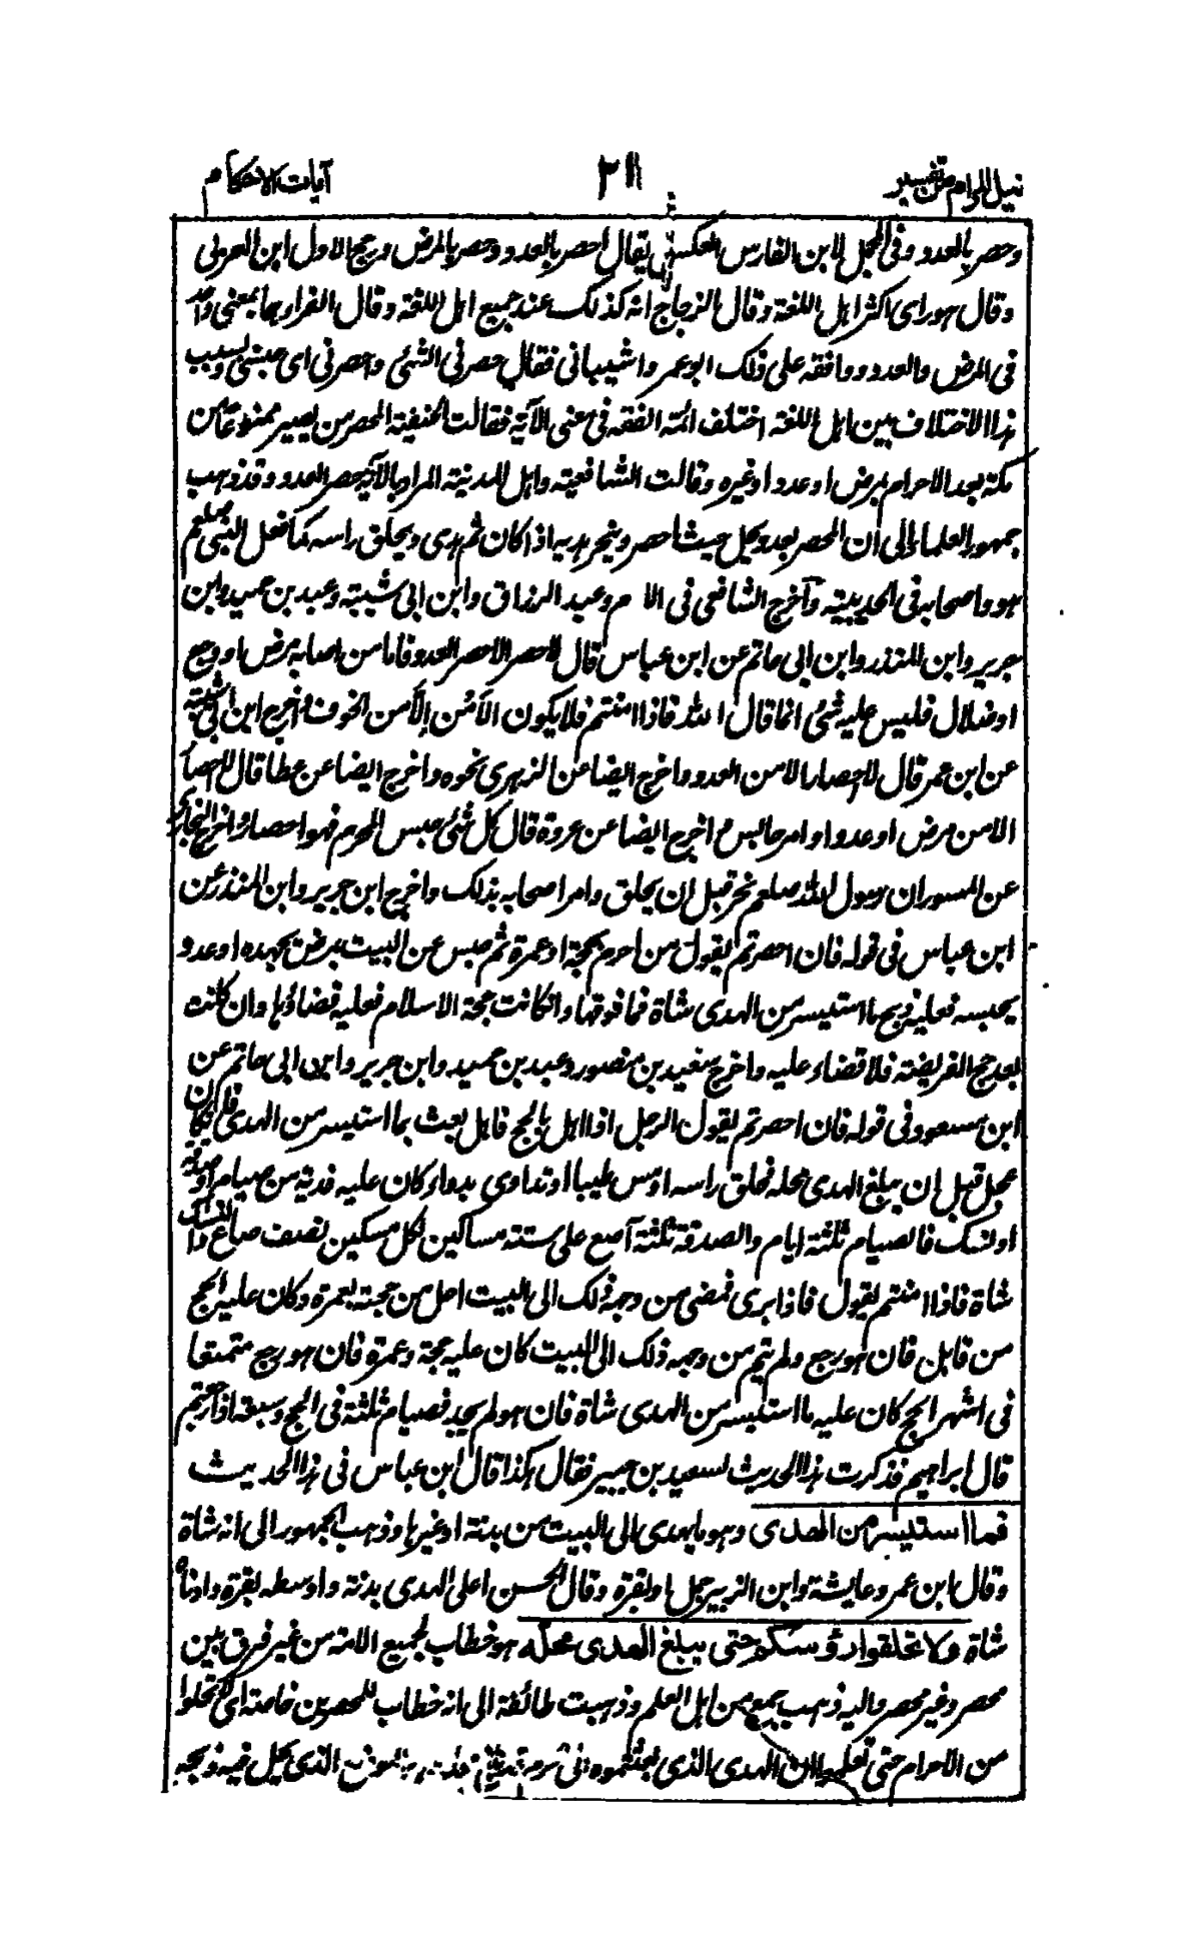 نيل المرام من تفسير ٢١١ آيات الاحكام
وحصر بالعدو وفى المجمل لابن الفارس العكس يقال احصر بالعدو وحصر بالمرض ورجح الاول ابن العربى
وقال هو راى اكثر اهل اللغة وقال الزجاج انه كذلك عند جميع اهل اللغة وقال الفراء هما بمعنى واحد
فى المرض والعدو ووافقه على ذلك ابو عمرو الشيبانى فقال حصرنى الشئ واحصرنى اى حبسنى وبسبب
هذا الاختلاف بين اهل اللغة اختلف ائمة الفقه فى معنى الآية فقالت الحنفية المحصر من يصير ممنوعا من
مكة بعد الاحرام بمرض او عدو او غيره وقالت الشافعية واهل المدينة المراد بالآية حصر العدو وقد ذهب
جمهور العلماء الى ان المحصر بعدو يحل حيث احصر وينحر هديه اذا كان ثم هدى ويحلق راسه كما فعل النبى صلعم
هو واصحابه فى الحديبية وآخرج الشافعى فى الام وعبد الرزاق وابن ابى شيبة وعبد بن حميد وابن
جرير وابن المنذر وابن ابى حاتم عن ابن عباس قال لا حصر الا حصر العدو فاما من اصابه مرض او وجع
او ضلال فليس عليه شئ انما قال الله فاذا امنتم فلا يكون الامن الا من الخوف واخرج ابن ابى شيبة
عن ابن عمر قال لا احصار الا من العدو واخرج ايضا عن الزهرى نحوه واخرج ايضا عن عطا قال لا احصار
الا من مرض او عدو او امر حابس واخرج ايضا عن عروة قال كل شئ حبس المحرم فهو احصار واخرج البخارى
عن المسور ان رسول الله صلعم نحر قبل ان يحلق وامر اصحابه بذلك واخرج ابن جرير وابن المنذر عن
ابن عباس فى قوله فان احصرتم يقول من احرم بحجة او عمرة ثم حبس عن البيت بمرض يجهده او عدو
يحبسه فعليه ذبح ما استيسر من الهدى شاة فما فوقها وان كانت حجة الاسلام فعليه قضاؤها وان كانت
بعد حج الفريضة فلا قضاء عليه واخرج سعيد بن منصور وعبد بن حميد وابن جرير وابن ابى حاتم عن
ابن مسعود فى قوله فان احصرتم يقول الرجل اذا اهل بالحج فاهل بعث بما استيسر من الهدى فان كان
عجل قبل ان يبلغ الهدى محله فحلق راسه او مس طيبا او تداوى بدواء كان عليه فدية من صيام او صدقة
او نسك فالصيام ثلثة ايام والصدقة ثلثة آصع على ستة مساكين لكل مسكين نصف صاع والنسك
شاة فاذا امنتم يقول فاذا برى فمضى من وجهه ذلك الى البيت احل من حجته بعمرة وكان عليه الحج
من قابل فان هو رجع ولم يتم من وجهه ذلك الى البيت كان عليه حجة وعمرة فان هو رجع متمتعا
فى اشهر الحج كان عليه ما استيسر من الهدى شاة فان هو لم يجد فصيام ثلثة فى الحج وسبعة اذا رجعتم
قال ابراهيم فذكرت هذا الحديث لسعيد بن جبير فقال هكذا قال ابن عباس فى هذا الحديث
فما استيسر من الهدى وهو ما يهدى الى البيت من بدنة او غيرها وذهب الجمهور الى انه شاة
وقال ابن عمر وعايشة وابن الزبير جمل او بقرة وقال الحسن اعلى الهدى بدنة واوسطه بقرة وادناه
شاة ولا تحلقوا رؤسكم حتى يبلغ الهدى محله هو خطاب لجميع الامة من غير فرق بين
محصر وغير محصر واليه ذهب جمع من اهل العلم وذهبت طائفة الى انه خطاب للمحصرين خاصة اى لا تحلوا
من الاحرام حتى تعلموا ان الهدى الذى بعثتموه الى الموضع الذى يحل فيه ذبحه